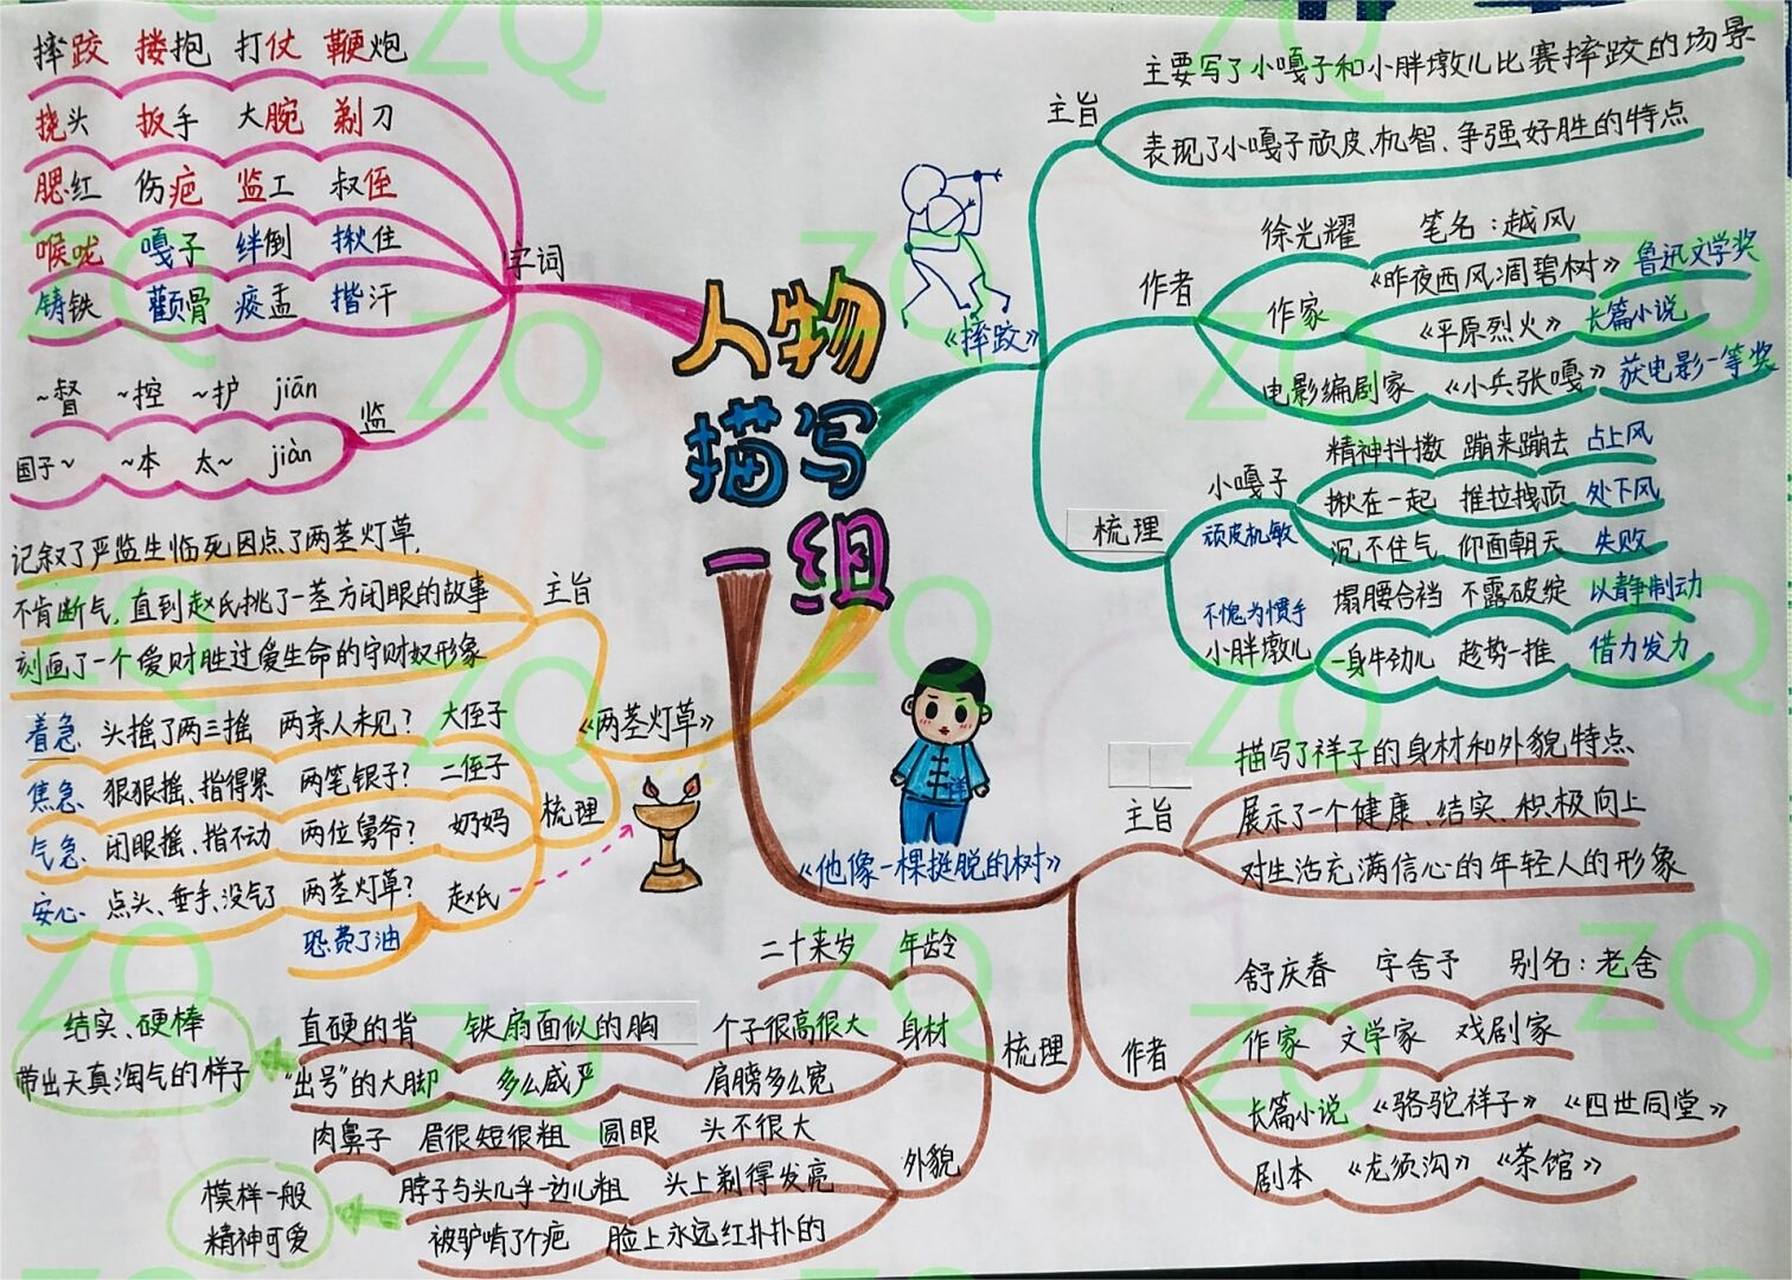 人物
描写
一组
字词
摔跤 搂抱 打仗 鞭炮
挠头 扳手 大腕 剃刀
腮红 伤疤 监工 叔侄
喉咙 嘎子 绊倒 揪住
铸铁 颧骨 痰盂 揩汗
监
~督 ~控 ~护 jiān
国子~ ~本 太~ jiàn
《摔跤》
主旨
主要写了小嘎子和小胖墩儿比赛摔跤的场景
表现了小嘎子顽皮、机智、争强好胜的特点
作者
徐光耀 笔名:越风
作家
《昨夜西风凋碧树》 鲁迅文学奖
《平原烈火》 长篇小说
电影编剧家 《小兵张嘎》 获电影一等奖
梳理
小嘎子
顽皮机敏
精神抖擞 蹦来蹦去 占上风
揪在一起 推拉拽顶 处下风
沉不住气 仰面朝天 失败
不愧为惯手
小胖墩儿
塌腰合裆 不露破绽 以静制动
一身牛劲儿 趁势一推 借力发力
《两茎灯草》
主旨
记叙了严监生临死因点了两茎灯草,
不肯断气,直到赵氏挑了一茎方闭眼的故事
刻画了一个爱财胜过爱生命的守财奴形象
梳理
着急 头摇了两三摇 两亲人未见? 大侄子
焦急 狠狠摇、指得紧 两笔银子? 二侄子
气急 闭眼摇、指不动 两位舅爷? 奶妈
安心 点头、垂手、没气了 两茎灯草? 赵氏
恐费了油
祥
《他像一棵挺脱的树》
主旨
描写了祥子的身材和外貌特点
展示了一个健康、结实、积极向上
对生活充满信心的年轻人的形象
作者
舒庆春 字舍予 别名:老舍
作家 文学家 戏剧家
长篇小说 《骆驼祥子》 《四世同堂》
剧本 《龙须沟》 《茶馆》
梳理
二十来岁 年龄
身材
直硬的背 铁扇面似的胸 个子很高很大
"出号"的大脚 多么威严 肩膀多么宽
结实、硬棒
带出天真淘气的样子
外貌
肉鼻子 眉很短很粗 圆眼 头不很大
脖子与头几乎一边儿粗 头上剃得发亮
被驴啃了个疤 脸上永远红扑扑的
模样一般
精神可爱
ZQ